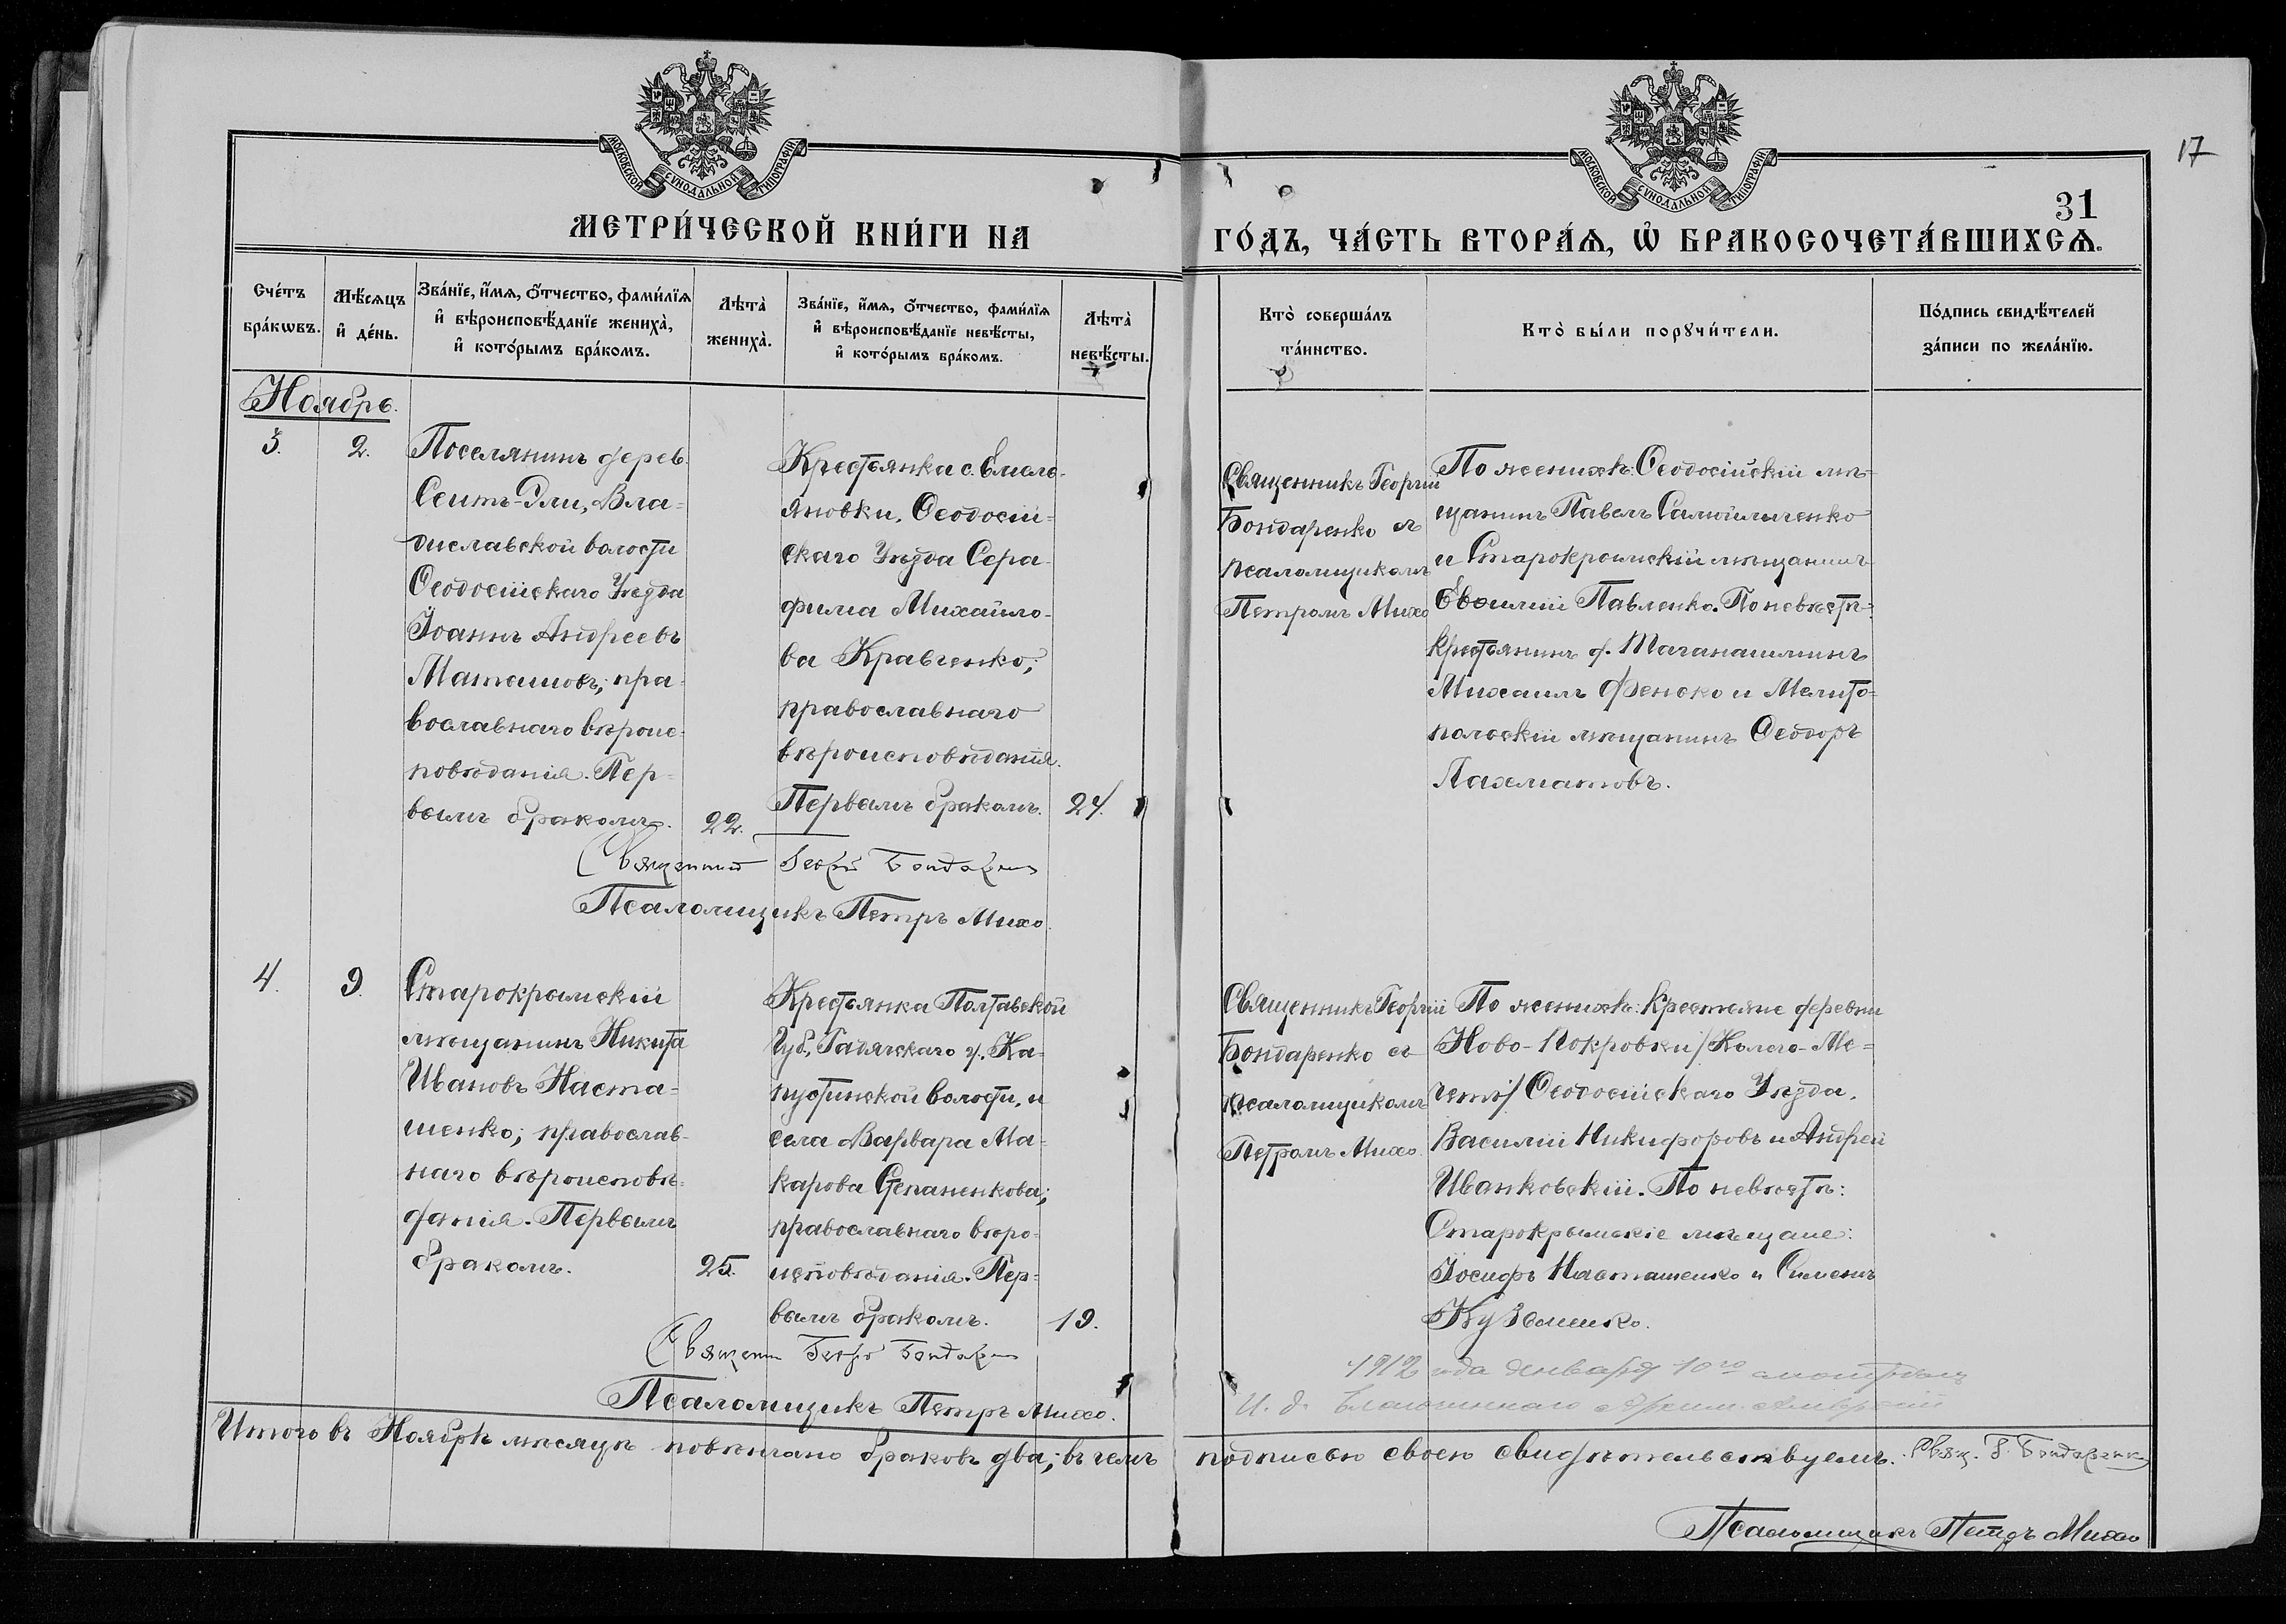 МОСКОВСКОЙ СѴНОДАЛЬНОЙ ТИПОГРАФІИ
МОСКОВСКОЙ СѴНОДАЛЬНОЙ ТИПОГРАФІИ
17
31
МЕТРИ́ЧЕСКОЙ КНИ́ГИ НА
ГО́ДЪ, ЧА́СТЬ ВТОРА́Ѧ, Ѽ БРАКОСОЧЕТА́ВШИХСѦ.
Сче́тъ
бра́кѡвъ.
Мѣ́сѧцъ
и҆ де́нь.
Зва́нїе, и҆́мѧ, ѻ҆́тчество, фами́лїѧ
и҆ вѣроисповѣ́данїе жениха̀,
и҆ кото́рымъ бра́комъ.
Лѣта̀
жениха̀.
Зва́нїе, и҆́мѧ, ѻ҆́тчество, фами́лїѧ
и҆ вѣроисповѣ́данїе невѣ́сты,
и҆ кото́рымъ бра́комъ.
Лѣта̀
невѣ́сты.
Кто̀ соверша́лъ
та́инство.
Кто̀ бы́ли порꙋчи́тели.
По́дпись свидѣ́телей
за́писи по жела́нїю.
Ноябрь.
3.
2.
Поселянинъ дерев.
Сеитъ-Эли, Вла-
диславской волости
Ѳеодосійскаго Уѣзда
Іоаннъ Андреевъ
пра-
вославнаго вѣроис-
повѣданія. Пер-
вымъ бракомъ.
22.
Крестьянка с. Емель-
яновки, Ѳеодосій-
скаго Уѣзда Сера-
фима Михайло-
ва Кравченко;
православнаго
вѣроисповѣданія.
Первымъ бракомъ.
24.
Священникъ Георгій
Бондаренко съ
псаломщикомъ
Петромъ Михо
По женихѣ: Ѳеодосійскій мѣ-
щанинъ Павелъ Самойличенко
и Старокрымскій мѣщанинъ
Евѳимій Павленко. По невѣстѣ:
Крестьянинъ д.
Михаилъ Фенько и Мелито-
польскій мѣщанинъ Ѳеодоръ
Пахматовъ.
Священник Георгій Бондаренко
Псаломщикъ Петръ Михо.
4.
9.
Старокрымскій
мѣщанинъ Никита
Ивановъ Наста-
шенко; православ-
наго вѣроисповѣ-
данія. Первымъ
бракомъ.
25.
Крестьянка Полтавской
Губ., Гадячскаго у. Ка-
пустинской волости, и
села Варвара Ма-
карова Степаненкова;
православнаго вѣро-
исповѣданія. Пер-
вымъ бракомъ.
19.
Священникъ Георгій
Бондаренко съ
псаломщикомъ
Петромъ Михо.
По женихѣ: Крестьяне деревни
Ново-Покровки /Колечъ-Ме-
четь/ Ѳеодосійскаго Уѣзда.
Василій Никифоровъ и Андрей
Иванковскій. По невѣстѣ:
Старокрымскіе мѣщане:
Іосифъ Насташенко и Симеонъ
Кузьменко.
Священ Георг Бондарен
Псаломщикъ Петръ Михо.
1912 года Января 10го
И. д. Благочиннаго
Итого въ Ноябрѣ мѣсяцѣ повѣнчано браковъ два; въ чемъ
подписью своею свидѣтельствуемъ. Свящ. Г. Бондаренко
Псаломщикъ Петръ Михо